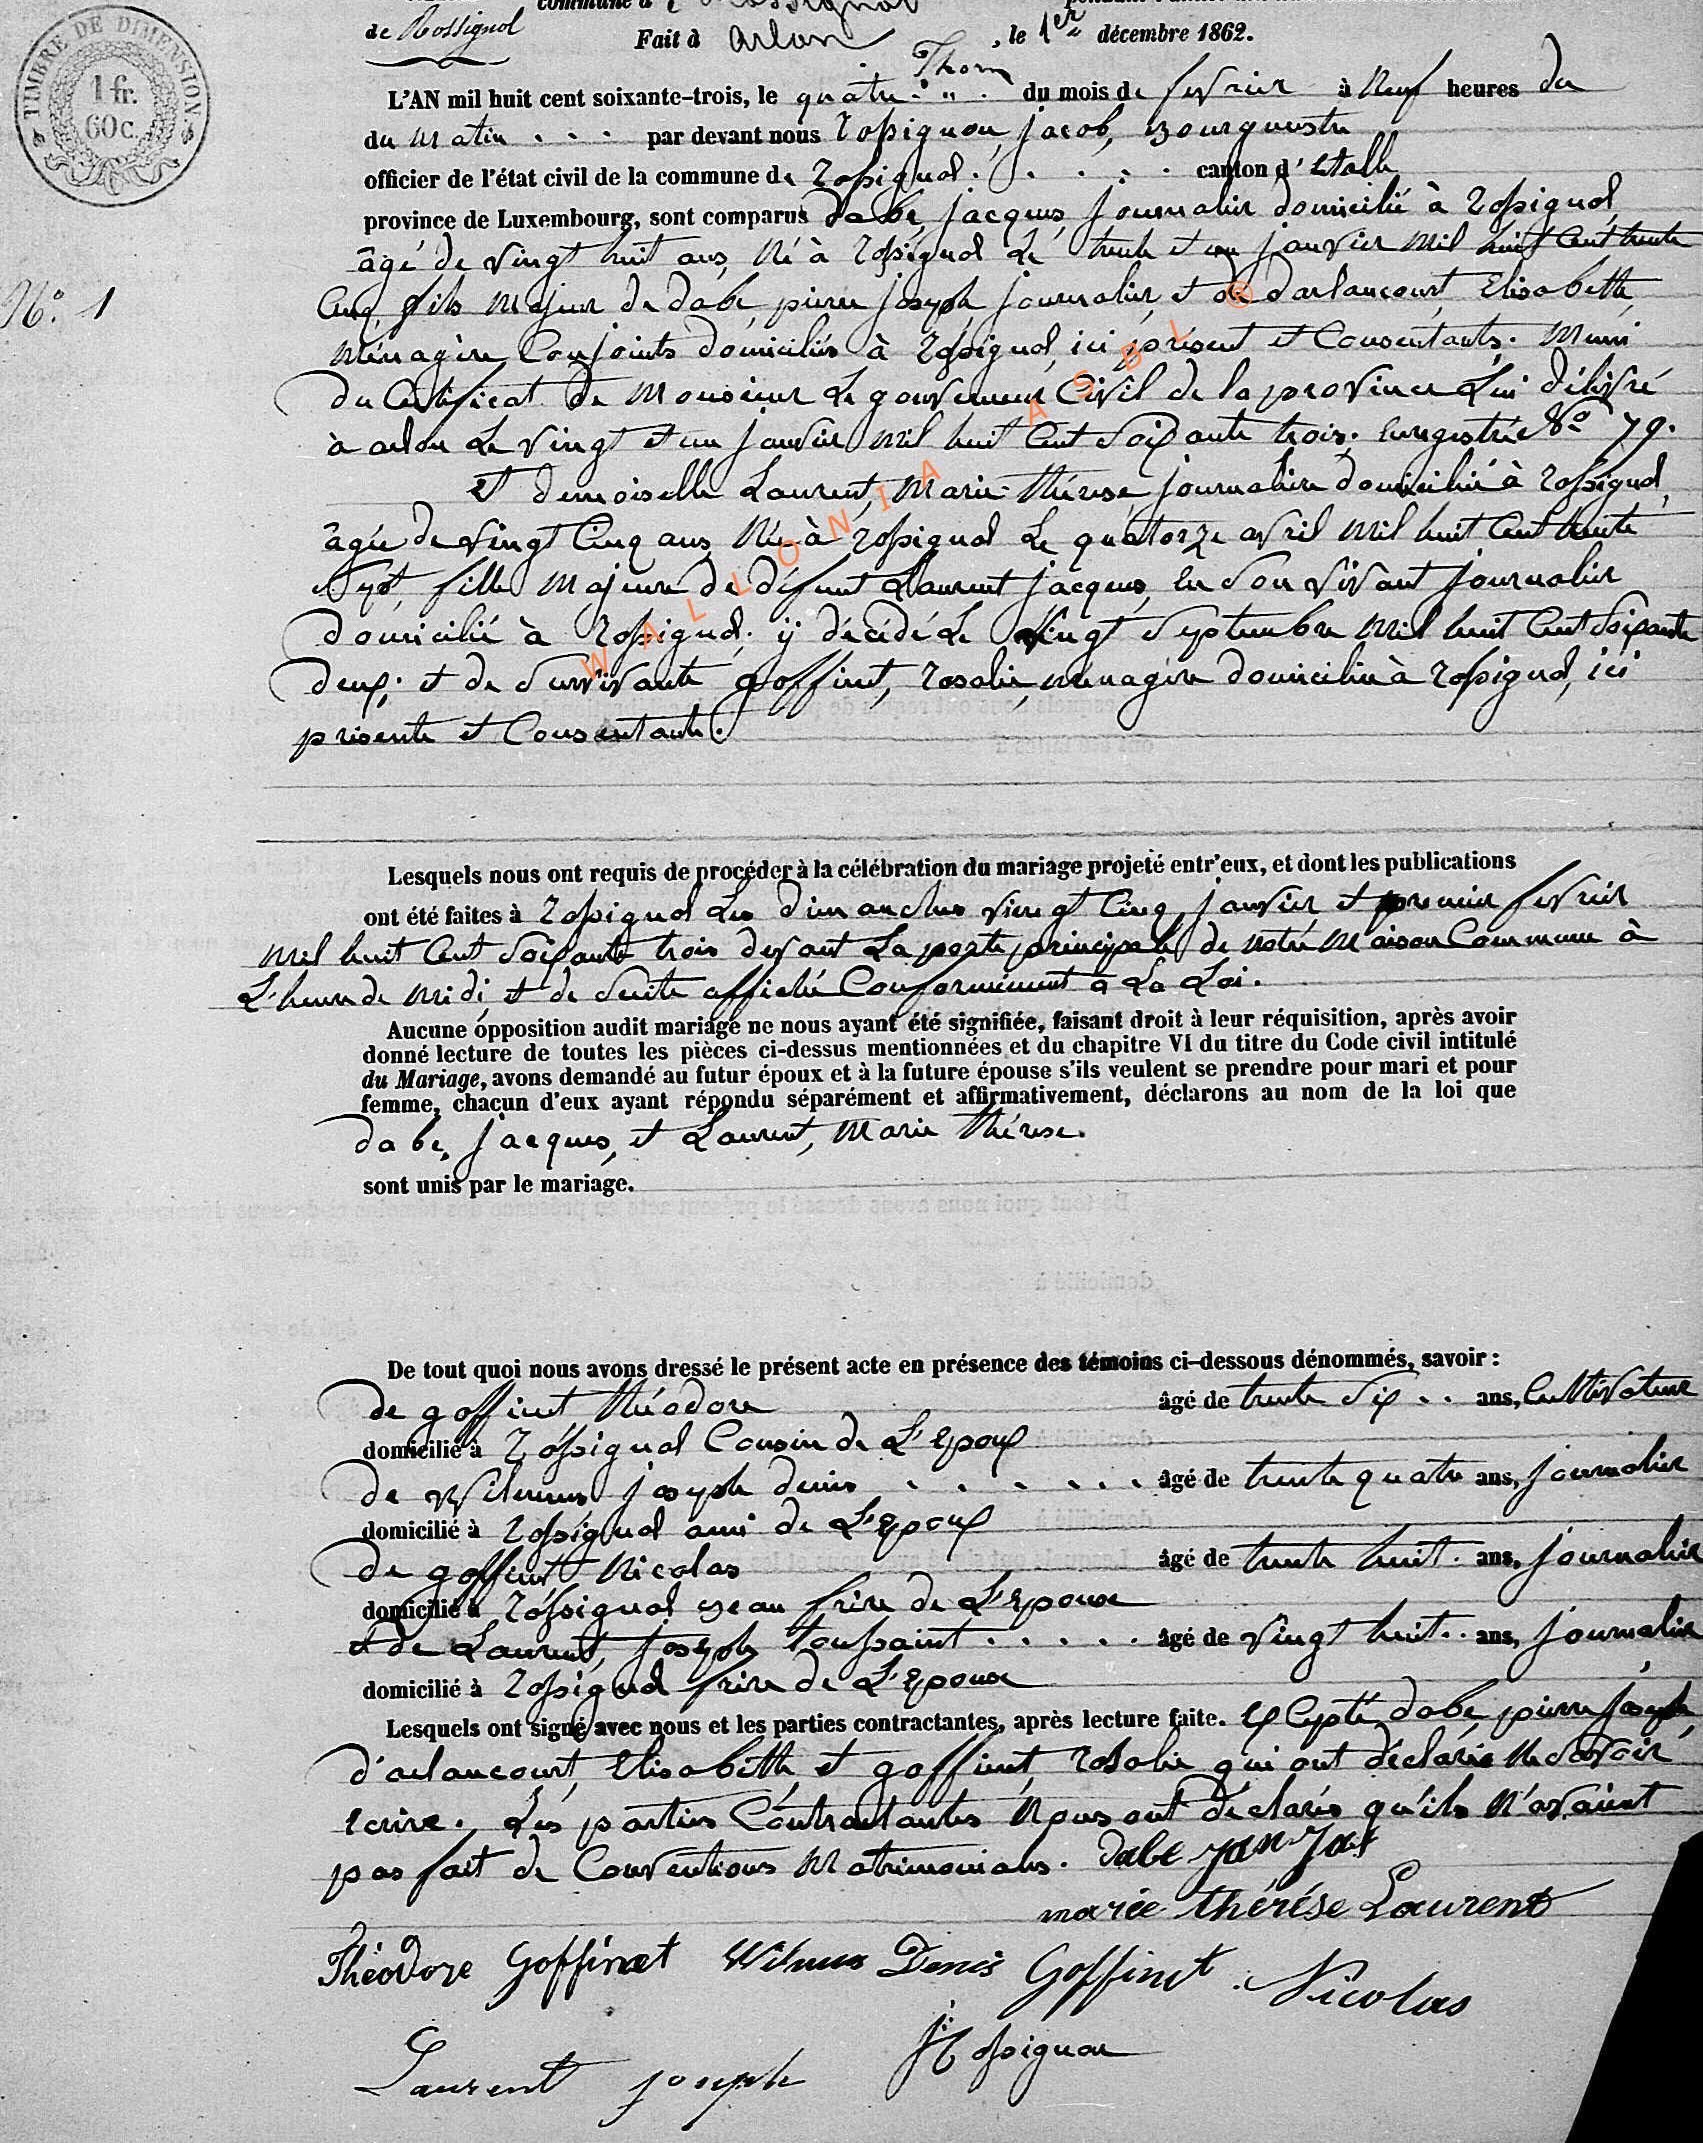 TIMBRE DE DIMENSION
1 fr.
60 c.
de Rossignol
Fait à Arlon, le 1er décembre 1862.
Thorn
L'AN mil huit cent soixante-trois, le quatre du mois de fevrier à Neuf heures du
du Matin . . . par devant nous Rossignon, jacob, Bourguestre
officier de l'état civil de la commune de Rossignol . . . . . canton d'Etalle
province de Luxembourg, sont comparus dabe, jacques, journalier domicilié à Rossignol
âgé de vingt huit ans, Né à Rossignol Le trente et un janvier Mil huit Cent trente
Cinq, fils Majeur de dabe, pierre joseph, journalier, et de darlancourt, Elisabette,
Ménagère, Conjoints domiciliés à Rossignol, ici présent et Consentants. Muni
N.° 1
du Certificat de Monsieur Le gouverneur Civil de la province Lui délivré
à arlon Le vingt et un janvier Mil huit Cent Soixante trois. Enregistré N° 79.
et demoiselle Laurent, Marie-thérese journalière domiciliée à Rossignol,
âgée de vingt Cinq ans, Née à Rossignol Le quatorze avril Mil huit Cent trente
Sept, fille Majeure de défunt Laurent jacques, En Son vivant journalier
domicilié à Rossignol, ÿ décédé Le vingt Septembre Mil huit Cent Soixante
deux; et de Survivante goffinet, rosalie, ménagère domiciliée à Rossignol, ici
présente et Consentante.
WALLONIA ASBL ®
Lesquels nous ont requis de procéder à la célébration du mariage projeté entr'eux, et dont les publications
ont été faites à Rossignol Les dimanches vingt Cinq janvier et premier fevrier
Mil huit Cent Soixante trois devant La porte principale de notre Maison Commune à
L'heure de Midi et de Suite affiché Conformément a La Loi.
Aucune opposition audit mariage ne nous ayant été signifiée, faisant droit à leur réquisition, après avoir
donné lecture de toutes les pièces ci-dessus mentionnées et du chapitre VI du titre du Code civil intitulé
du Mariage, avons demandé au futur époux et à la future épouse s'ils veulent se prendre pour mari et pour
femme, chacun d'eux ayant répondu séparément et affirmativement, déclarons au nom de la loi que
dabe, jacques, et Laurent, Marie thérese.
sont unis par le mariage.
De tout quoi nous avons dressé le présent acte en présence des témoins ci-dessous dénommés, savoir :
de goffinet théodore âgé de trente Six . . ans, Cultivateur
domicilié à Rossignol Cousin de L'Epoux
de Wilmus joseph denis . . . . . . âgé de trente quatre ans, journalier
domicilié à Rossignol ami de L'Epoux
de goffinet Nicolas âgé de trente huit . ans, journalier
domicilié à Rossignol Beau frère de L'Epouse
et de Laurent, joseph toussaint . . . . . âgé de vingt huit . . ans, journalier
domicilié à Rossignol frère de L'Epouse
Lesquels ont signé avec nous et les parties contractantes, après lecture faite. Excepté dabe, pierre joseph,
d'arlancourt, Elisabette, et goffinet, Rosalie qui ont déclarés Ne Savoir
ecrire. Les parties Contractantes Nous ont déclarés qu'ils N'avaient
pas fait de Conventions Matrimoniales. Dabe
marie thérése Laurent
Théodore Goffinet Wilmus Denis Goffinet Nicolas
Laurent joseph J Rossignon